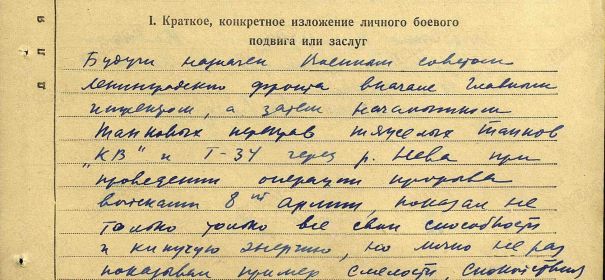 для
I. Краткое, конкретное изложение личного боевого
подвига или заслуг
Будучи назначен Военным советом
Ленинградского фронта вначале главным
инженером, а затем начальником
танковых переправ тяжелых танков
"КВ" и Т-34 через р. Нева при
проведении операции прорыва
войсками 8ой Армии, показал не
только только все свои способности
и кипучую энергию, но лично не раз
показывал пример смелости, спокойствия